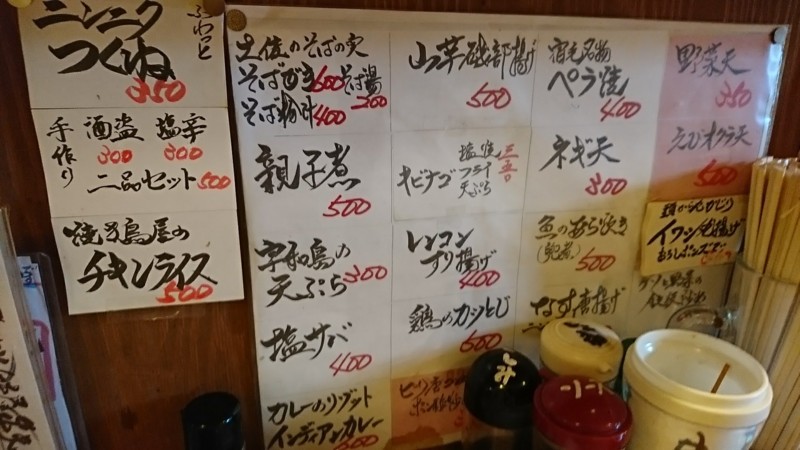 ふわっと
ニンニク
つくね
350
手作り
酒盗 300
塩辛 300
二品セット 500
焼き鳥屋の
チキンライス
500
土佐のそばの実
そばがき 600 そば湯 200
400
親子煮
500
宇和島の
天ぷら 300
塩サバ
400
カレーのリゾット
インディアンカレー
山芋磯部揚げ
500
キビナゴ
塩焼
フライ
天ぷら
三五〇
レンコン
すり揚げ
400
鶏のカツとじ
600
宿毛名物
ペラ焼
400
ネギ天
300
魚のあら炊き
500
なす唐揚げ
野菜天
350
えびオクラ天
500
頭からかじり
イワシ丸揚げ
み